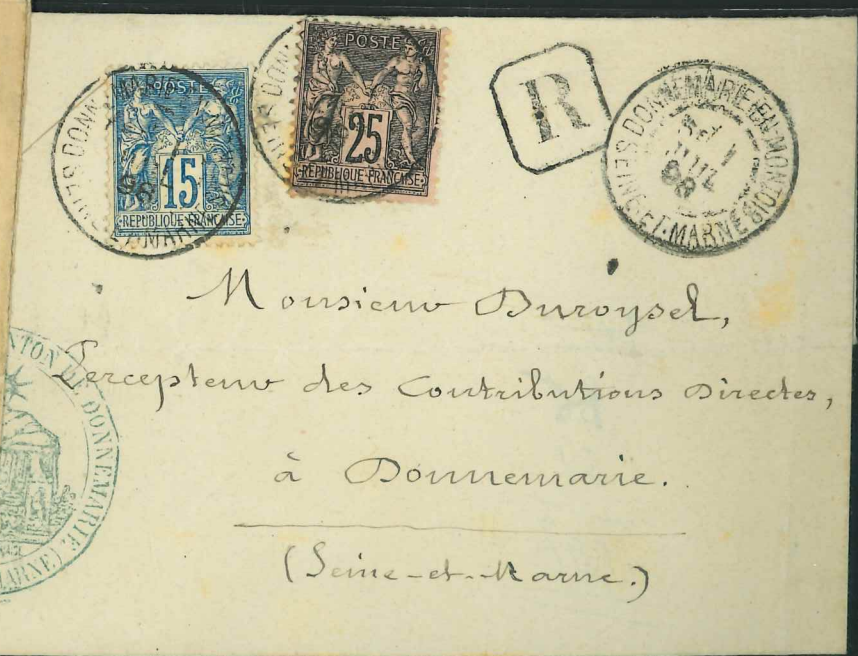 POSTE
15
RÉPUBLIQUE FRANÇAISE
POSTE
25
RÉPUBLIQUE FRANÇAISE
R
DONNEMARIE-EN-MONTOIS
SEINE-ET-MARNE
98
Monsieur Duroysel,
Percepteur des Contributions Directes,
à Donnemarie.
(Seine-et-Marne.)
DE DONNEMARIE
MARNE)